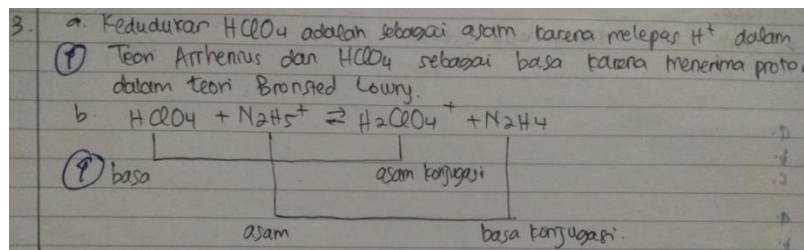 3. a. Kedudukan HClO4 adalah sebagai asam karena melepas H+ dalam
Teori Arrhenius dan HClO4 sebagai basa karena menerima proton
dalam teori Bronsted Lowry.
b. HClO4 + N2H5+ ⇄ H2ClO4+ + N2H4
basa asam konjugasi
asam basa konjugasi.